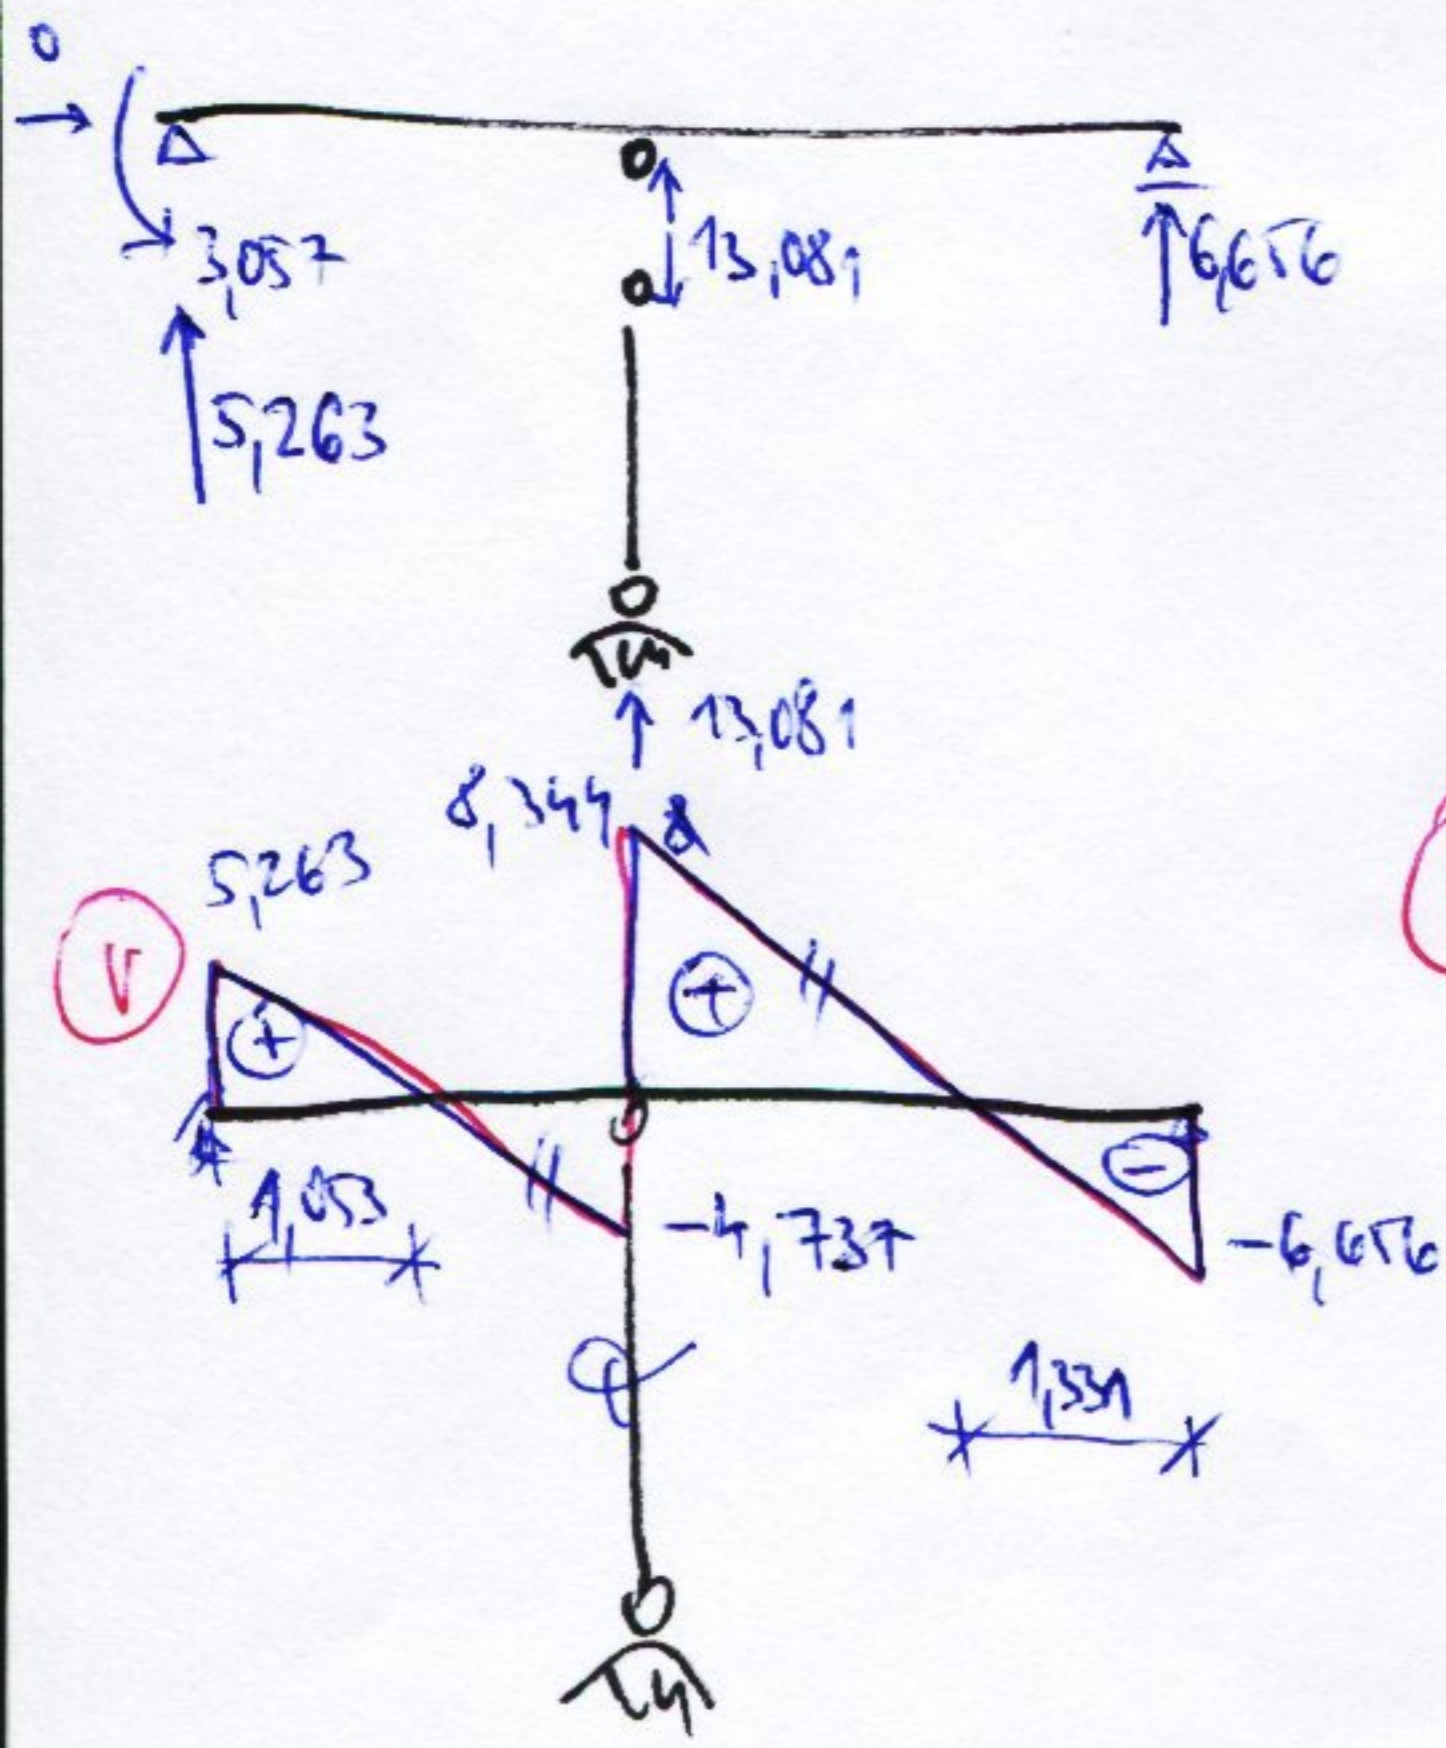 0
3,057
13,081
6,656
5,263
13,081
8,344
5,263
V
+
+
-
1,053
-4,737
-6,656
1,331